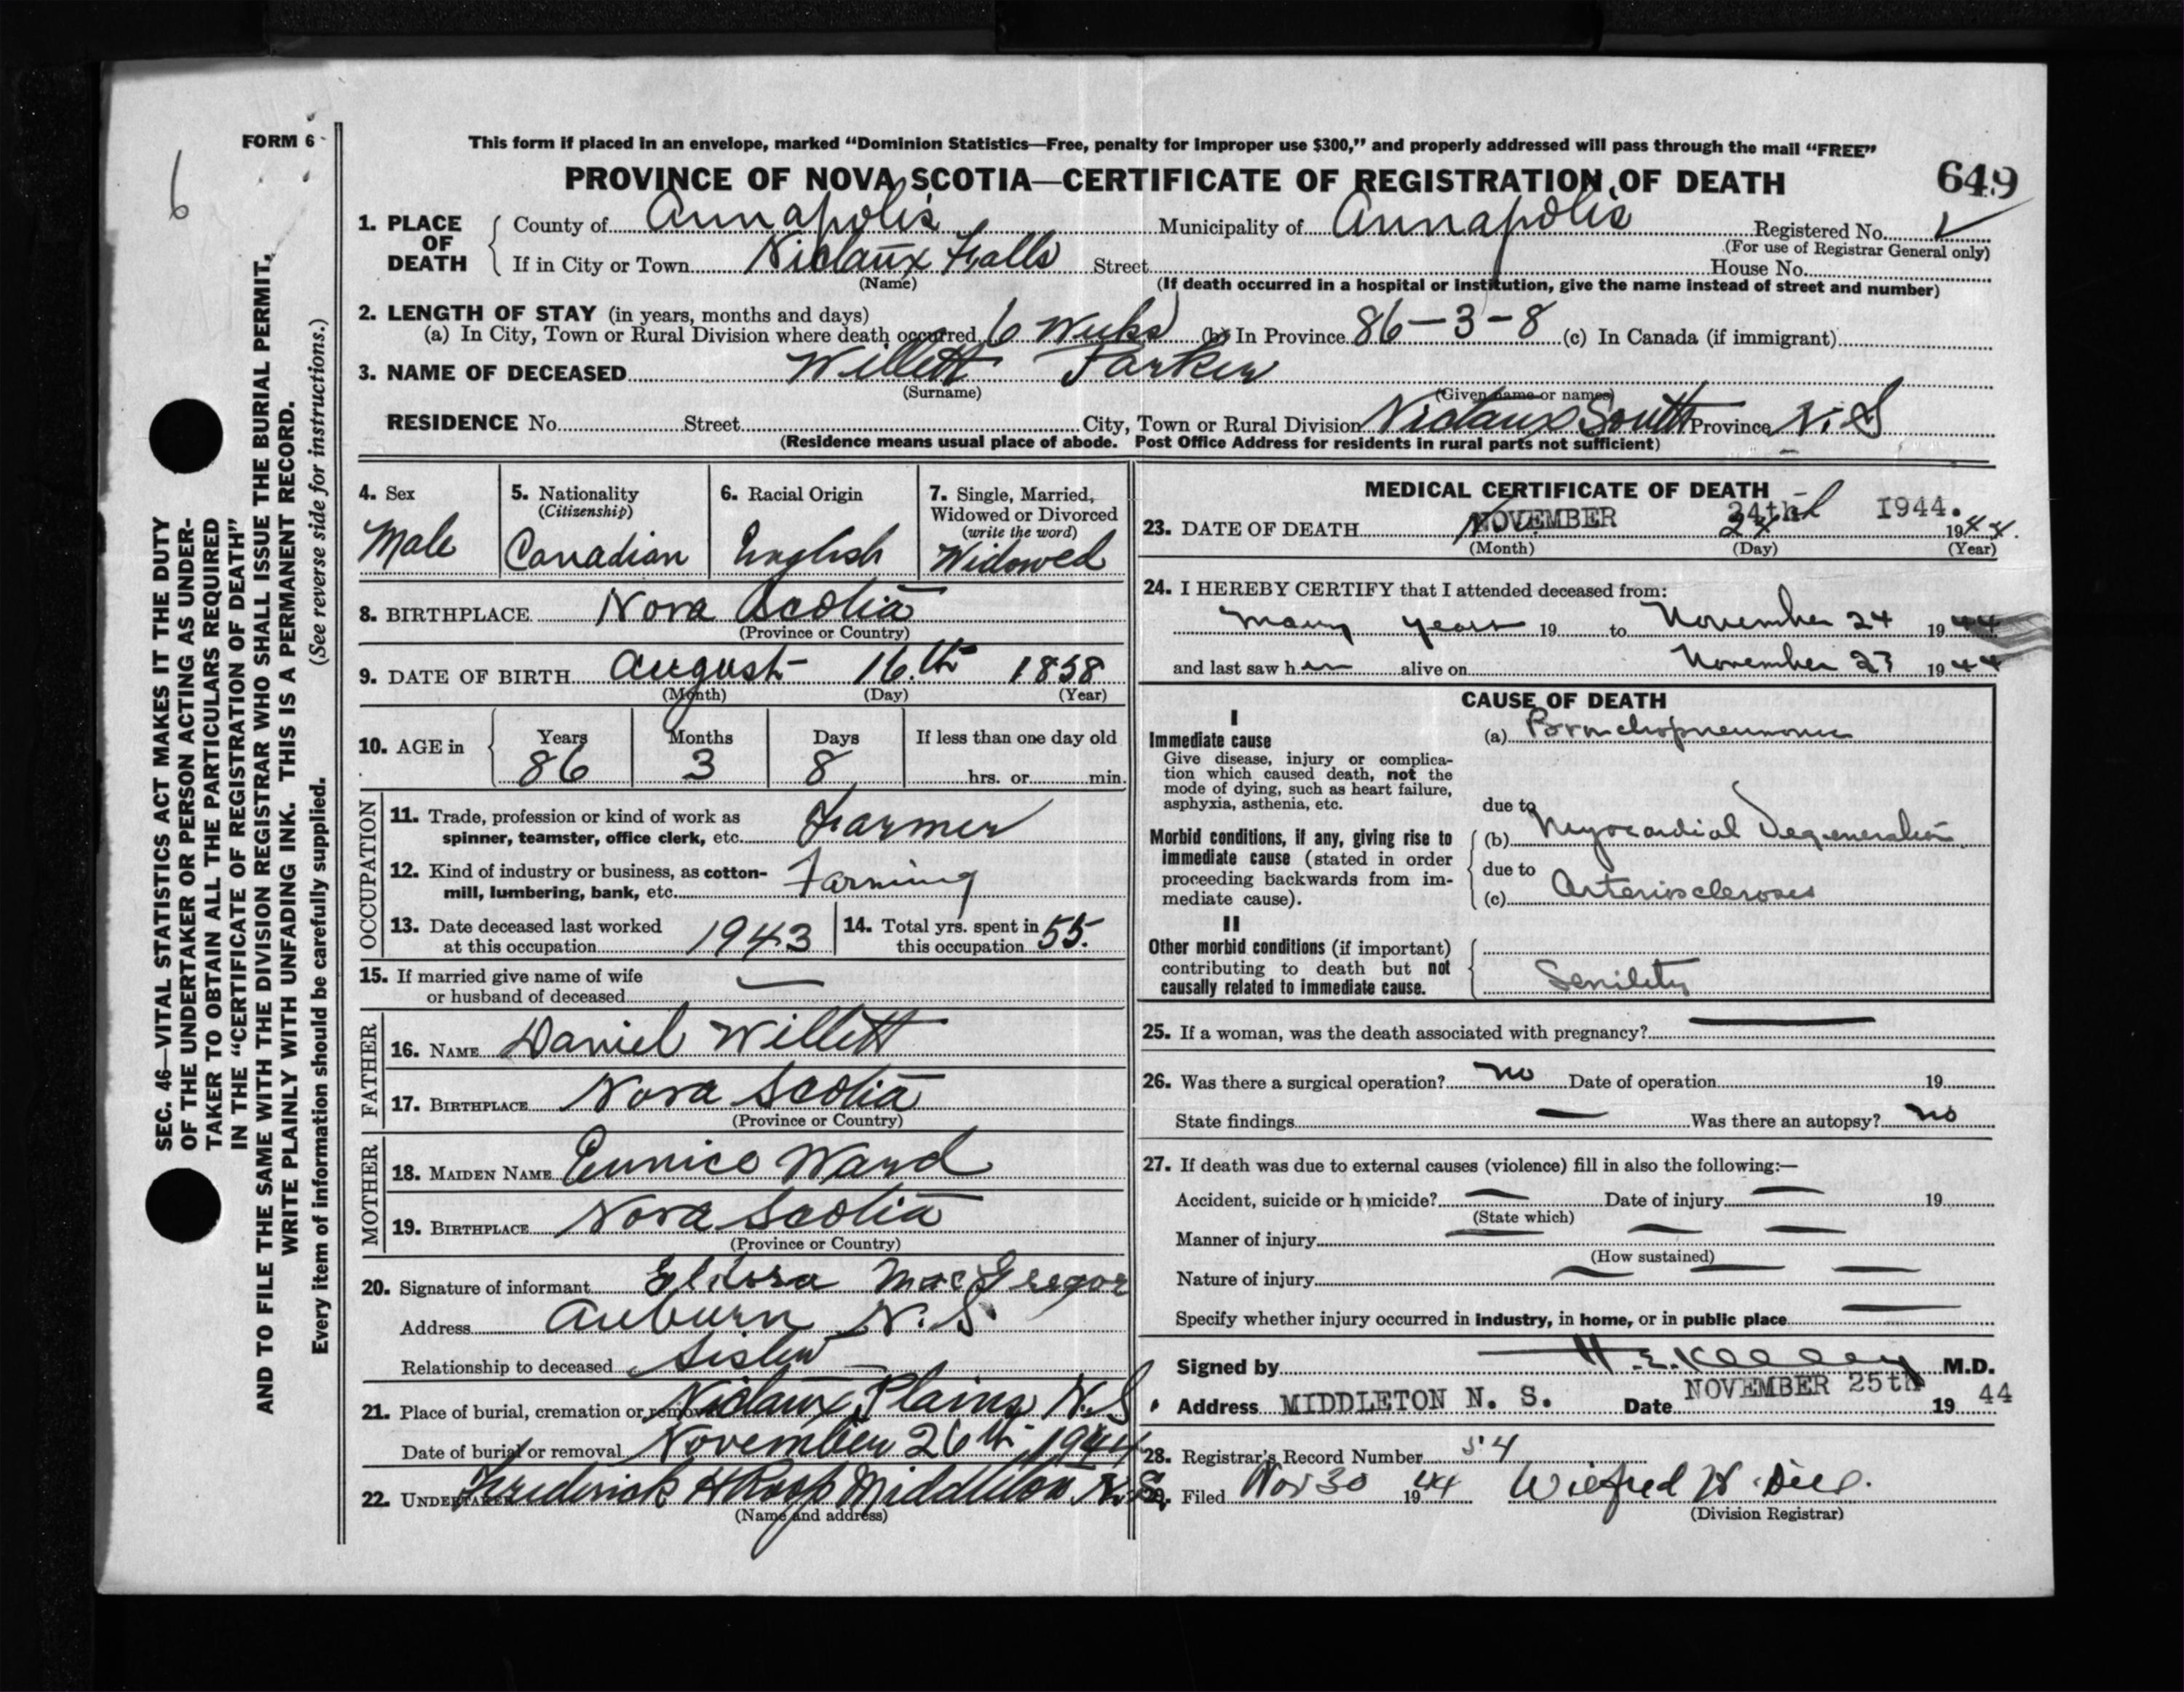 FORM 6
6
This form if placed in an envelope, marked "Dominion Statistics—Free, penalty for improper use $300," and properly addressed will pass through the mail "FREE"
PROVINCE OF NOVA SCOTIA—CERTIFICATE OF REGISTRATION OF DEATH
649
1. PLACE OF DEATH
County of Annapolis Municipality of Annapolis Registered No.
(For use of Registrar General only)
If in City or Town Nictaux Falls Street House No.
(Name) (If death occurred in a hospital or institution, give the name instead of street and number)
2. LENGTH OF STAY (in years, months and days)
(a) In City, Town or Rural Division where death occurred 6 Weeks (b) In Province 86-3-8 (c) In Canada (if immigrant)
3. NAME OF DECEASED Willett Parker
(Surname) (Given name or names)
RESIDENCE No. Street City, Town or Rural Division Nictaux South Province N.S
(Residence means usual place of abode. Post Office Address for residents in rural parts not sufficient)
4. Sex
Male
5. Nationality
(Citizenship)
Canadian
6. Racial Origin
English
7. Single, Married,
Widowed or Divorced
(write the word)
Widowed
8. BIRTHPLACE Nova Scotia
(Province or Country)
9. DATE OF BIRTH August 16.th 1858
(Month) (Day) (Year)
10. AGE in
Years Months Days If less than one day old
86 3 8 hrs. or min.
OCCUPATION
11. Trade, profession or kind of work as
spinner, teamster, office clerk, etc. Farmer
12. Kind of industry or business, as cotton-
mill, lumbering, bank, etc. Farming
13. Date deceased last worked
at this occupation 1943
14. Total yrs. spent in
this occupation 55.
15. If married give name of wife
or husband of deceased —
FATHER
16. NAME Daniel Willett
17. BIRTHPLACE Nova Scotia
(Province or Country)
MOTHER
18. MAIDEN NAME Eunice Ward
19. BIRTHPLACE Nova Scotia
(Province or Country)
20. Signature of informant Eldora MacGregor
Address Auburn N.S.
Relationship to deceased Sister
21. Place of burial, cremation or removal Nictaux Plains N.S
Date of burial or removal November 26th 1944
22. UNDERTAKER Frederick H Roop Middleton N.S.
(Name and address)
MEDICAL CERTIFICATE OF DEATH
23. DATE OF DEATH NOVEMBER 24th 1944.
24 1944.
(Month) (Day) (Year)
24. I HEREBY CERTIFY that I attended deceased from:
many years 19 to November 24 1944
and last saw h im alive on November 23 1944
CAUSE OF DEATH
I
Immediate cause
Give disease, injury or complica-
tion which caused death, not the
mode of dying, such as heart failure,
asphyxia, asthenia, etc.
(a) Bronchopneumonia
due to
Morbid conditions, if any, giving rise to
immediate cause (stated in order
proceeding backwards from im-
mediate cause).
(b) Myocardial Degeneration
due to
(c) Arteriosclerosis
II
Other morbid conditions (if important)
contributing to death but not
causally related to immediate cause.
Senility
25. If a woman, was the death associated with pregnancy? —
26. Was there a surgical operation? no Date of operation 19
State findings — Was there an autopsy? no
27. If death was due to external causes (violence) fill in also the following:—
Accident, suicide or homicide? — Date of injury — 19
(State which)
Manner of injury — — —
(How sustained)
Nature of injury — — —
Specify whether injury occurred in industry, in home, or in public place —
Signed by H.E. Kelley M.D.
Address MIDDLETON N. S. Date NOVEMBER 25th 19 44
28. Registrar's Record Number 54
29. Filed Nov 30 1944
(Division Registrar)
SEC. 46—VITAL STATISTICS ACT MAKES IT THE DUTY
OF THE UNDERTAKER OR PERSON ACTING AS UNDER-
TAKER TO OBTAIN ALL THE PARTICULARS REQUIRED
IN THE "CERTIFICATE OF REGISTRATION OF DEATH"
AND TO FILE THE SAME WITH THE DIVISION REGISTRAR WHO SHALL ISSUE THE BURIAL PERMIT.
WRITE PLAINLY WITH UNFADING INK. THIS IS A PERMANENT RECORD.
Every item of information should be carefully supplied. (See reverse side for instructions.)